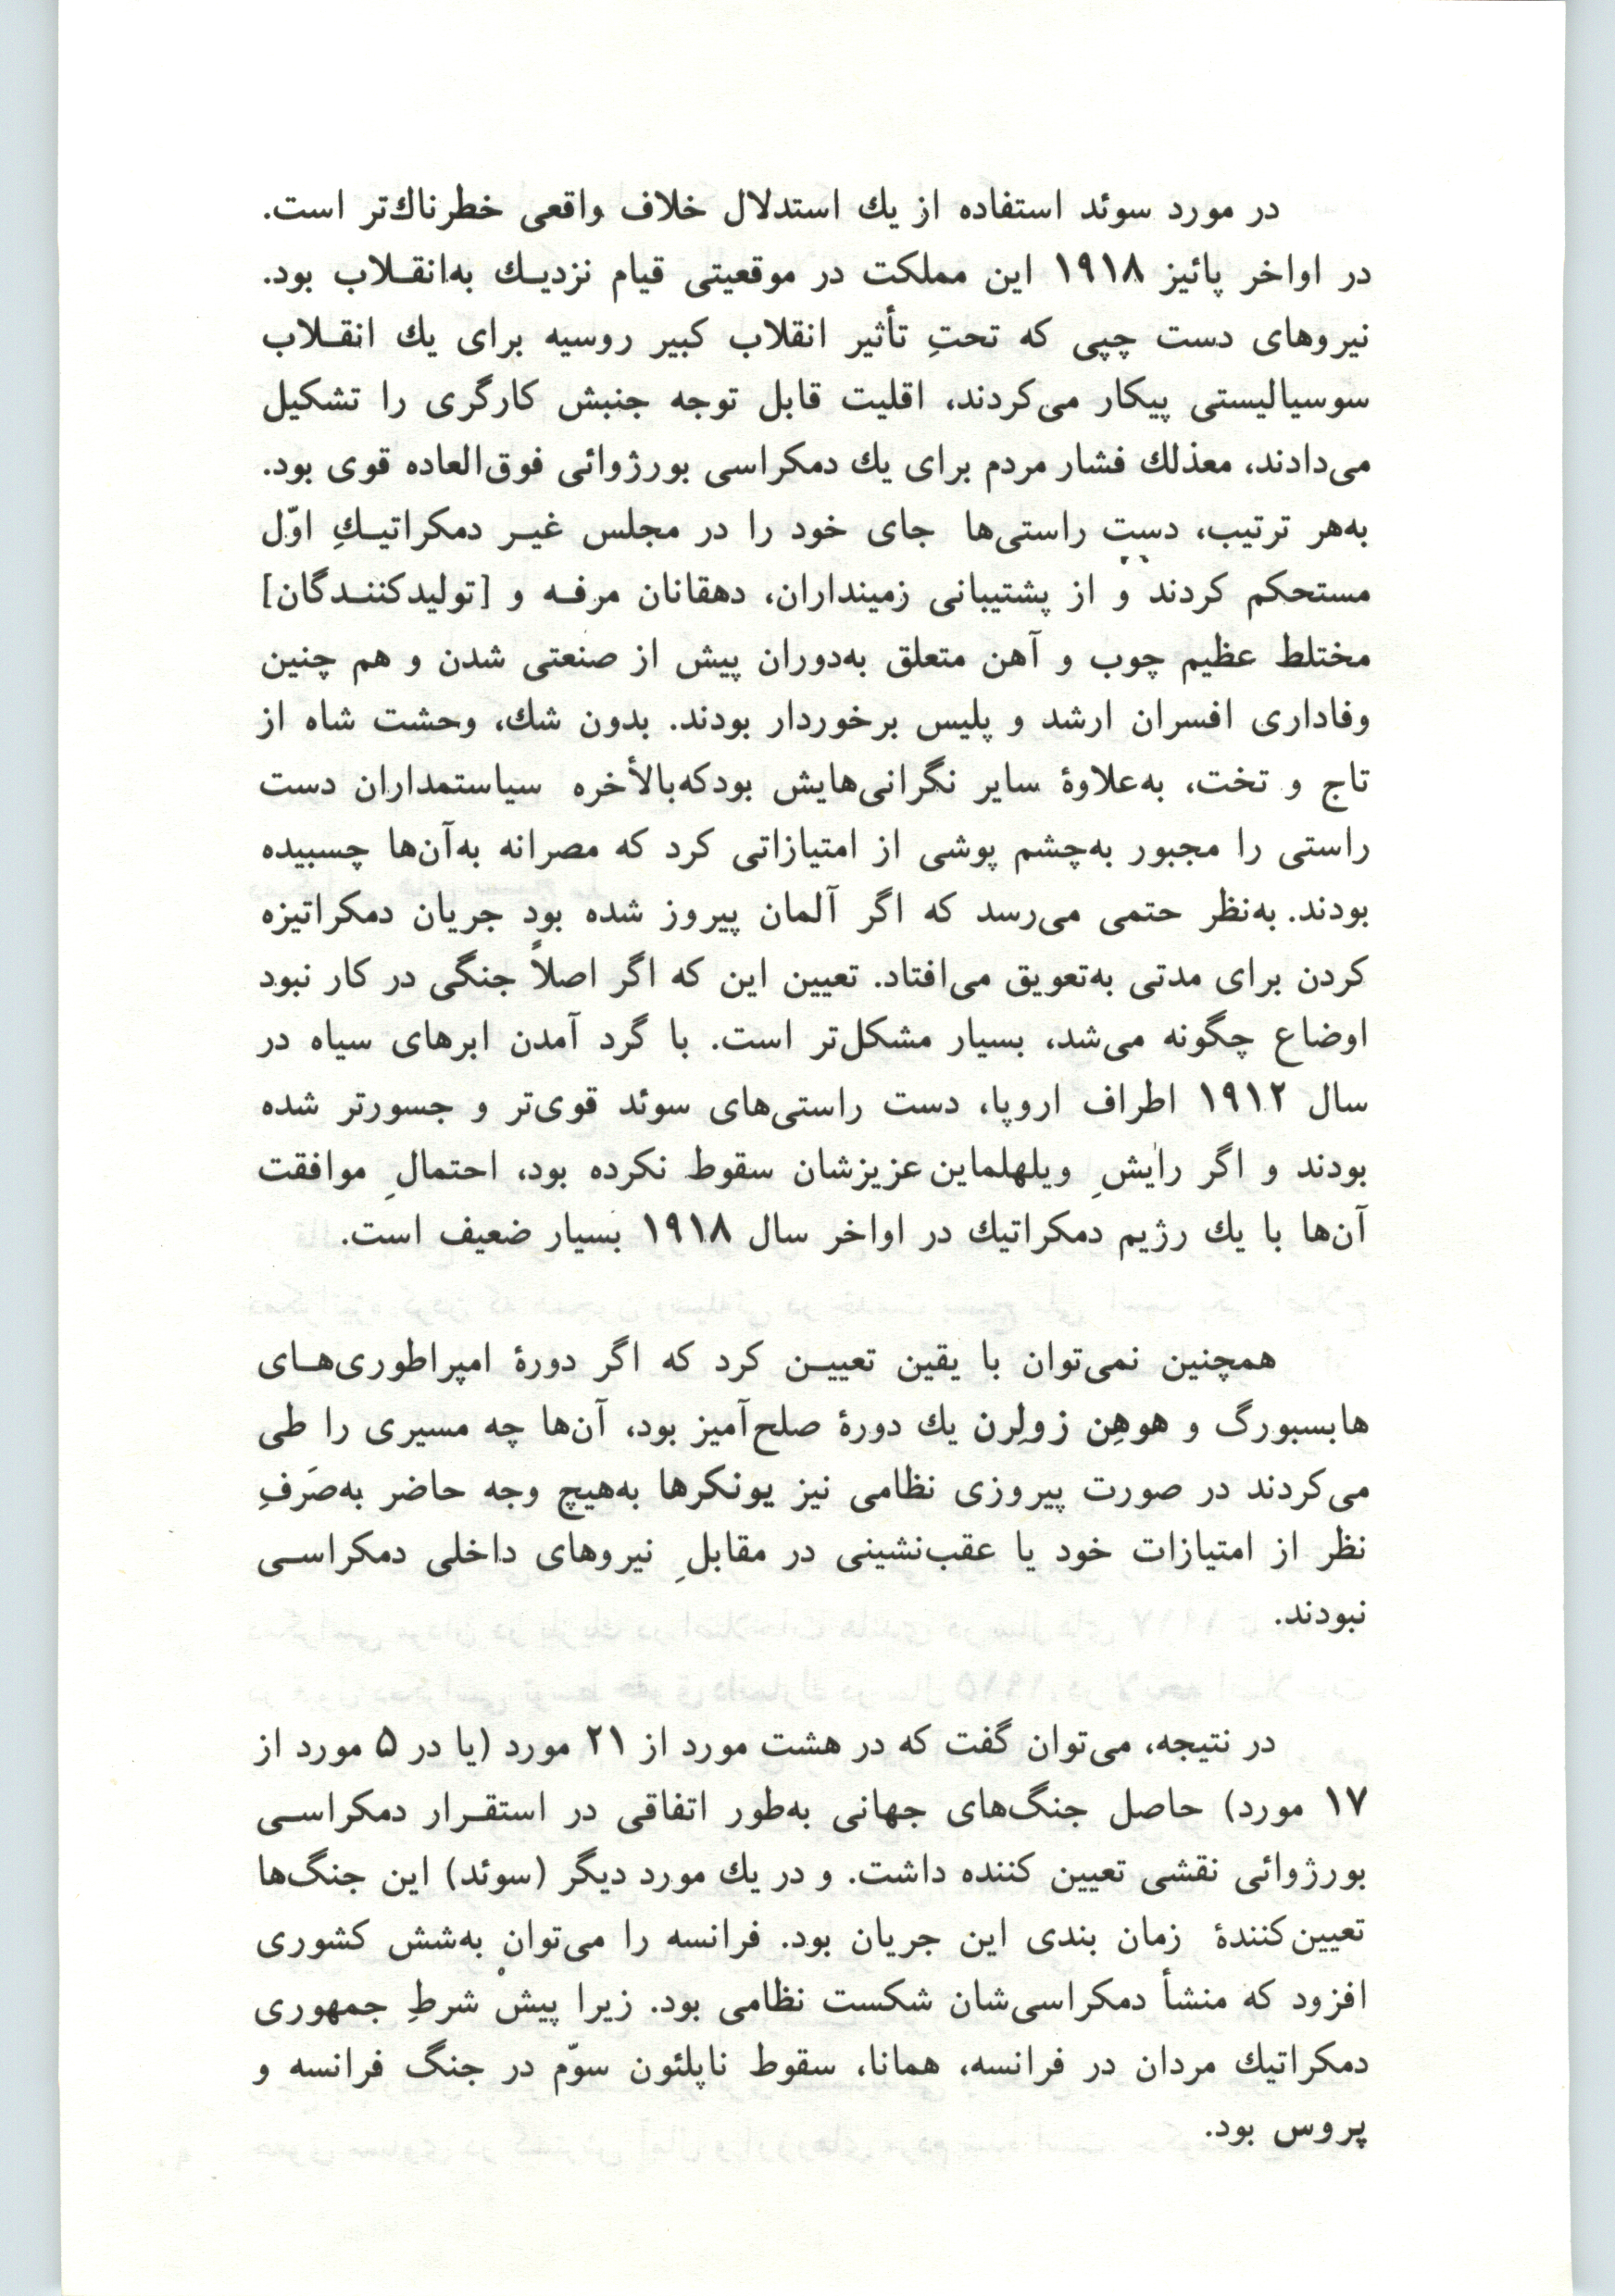 در مورد سوئد استفاده از یك استدلال خلاف واقعی خطرناك‌تر است.
در اواخر پائیز ۱۹۱۸ این مملکت در موقعیتی قیام نزدیـك به‌انقـلاب بود.
نیروهای دست چپی که تحتِ تأثیر انقلاب کبیر روسیه برای یك انقـلاب
سوسیالیستی پیکار می‌کردند، اقلیت قابل توجه جنبش کارگری را تشکیل
می‌دادند، معذلك فشار مردم برای یك دمکراسی بورژوائی فوق‌العاده قوی بود.
به‌هر ترتیب، دستِ راستی‌ها جای خود را در مجلس غیـر دمکراتیـكِ اوّل
مستحکم کردند و از پشتیبانی زمینداران، دهقانان مرفـه و [تولیدکننـدگان]
مختلط عظیم چوب و آهن متعلق به‌دوران پیش از صنعتی شدن و هم چنین
وفاداری افسران ارشد و پلیس برخوردار بودند. بدون شك، وحشت شاه از
تاج و تخت، به‌علاوۀ سایر نگرانی‌هایش بودکه‌بالأخره سیاستمداران دست
راستی را مجبور به‌چشم پوشی از امتیازاتی کرد که مصرانه به‌آن‌ها چسبیده
بودند. به‌نظر حتمی می‌رسد که اگر آلمان پیروز شده بود جریان دمکراتیزه
کردن برای مدتی به‌تعویق می‌افتاد. تعیین این که اگر اصلاً جنگی در کار نبود
اوضاع چگونه می‌شد، بسیار مشکل‌تر است. با گرد آمدن ابرهای سیاه در
سال ۱۹۱۲ اطراف اروپا، دست راستی‌های سوئد قوی‌تر و جسورتر شده
بودند و اگر رایشِ ویلهلماین عزیزشان سقوط نکرده بود، احتمالِ موافقت
آن‌ها با یك رژیم دمکراتیك در اواخر سال ۱۹۱۸ بسیار ضعیف است.
همچنین نمی‌توان با یقین تعییـن کرد که اگر دورۀ امپراطوری‌هـای
هابسبورگ و هوهِن زولِرن یك دورۀ صلح‌آمیز بود، آن‌ها چه مسیری را طی
می‌کردند در صورت پیروزی نظامی نیز یونکرها به‌هیچ وجه حاضر به‌صَرفِ
نظر از امتیازات خود یا عقب‌نشینی در مقابلِ نیروهای داخلی دمکراسـی
نبودند.
در نتیجه، می‌توان گفت که در هشت مورد از ۲۱ مورد (یا در ۵ مورد از
۱۷ مورد) حاصل جنگ‌های جهانی به‌طور اتفاقی در استقـرار دمکراسـی
بورژوائی نقشی تعیین کننده داشت. و در یك مورد دیگر (سوئد) این جنگ‌ها
تعیین‌کنندۀ زمان بندی این جریان بود. فرانسه را می‌توان به‌شش کشوری
افزود که منشأ دمکراسی‌شان شکست نظامی بود. زیرا پیش شرطِ جمهوری
دمکراتیك مردان در فرانسه، همانا، سقوط ناپلئون سوّم در جنگ فرانسه و
پروس بود.